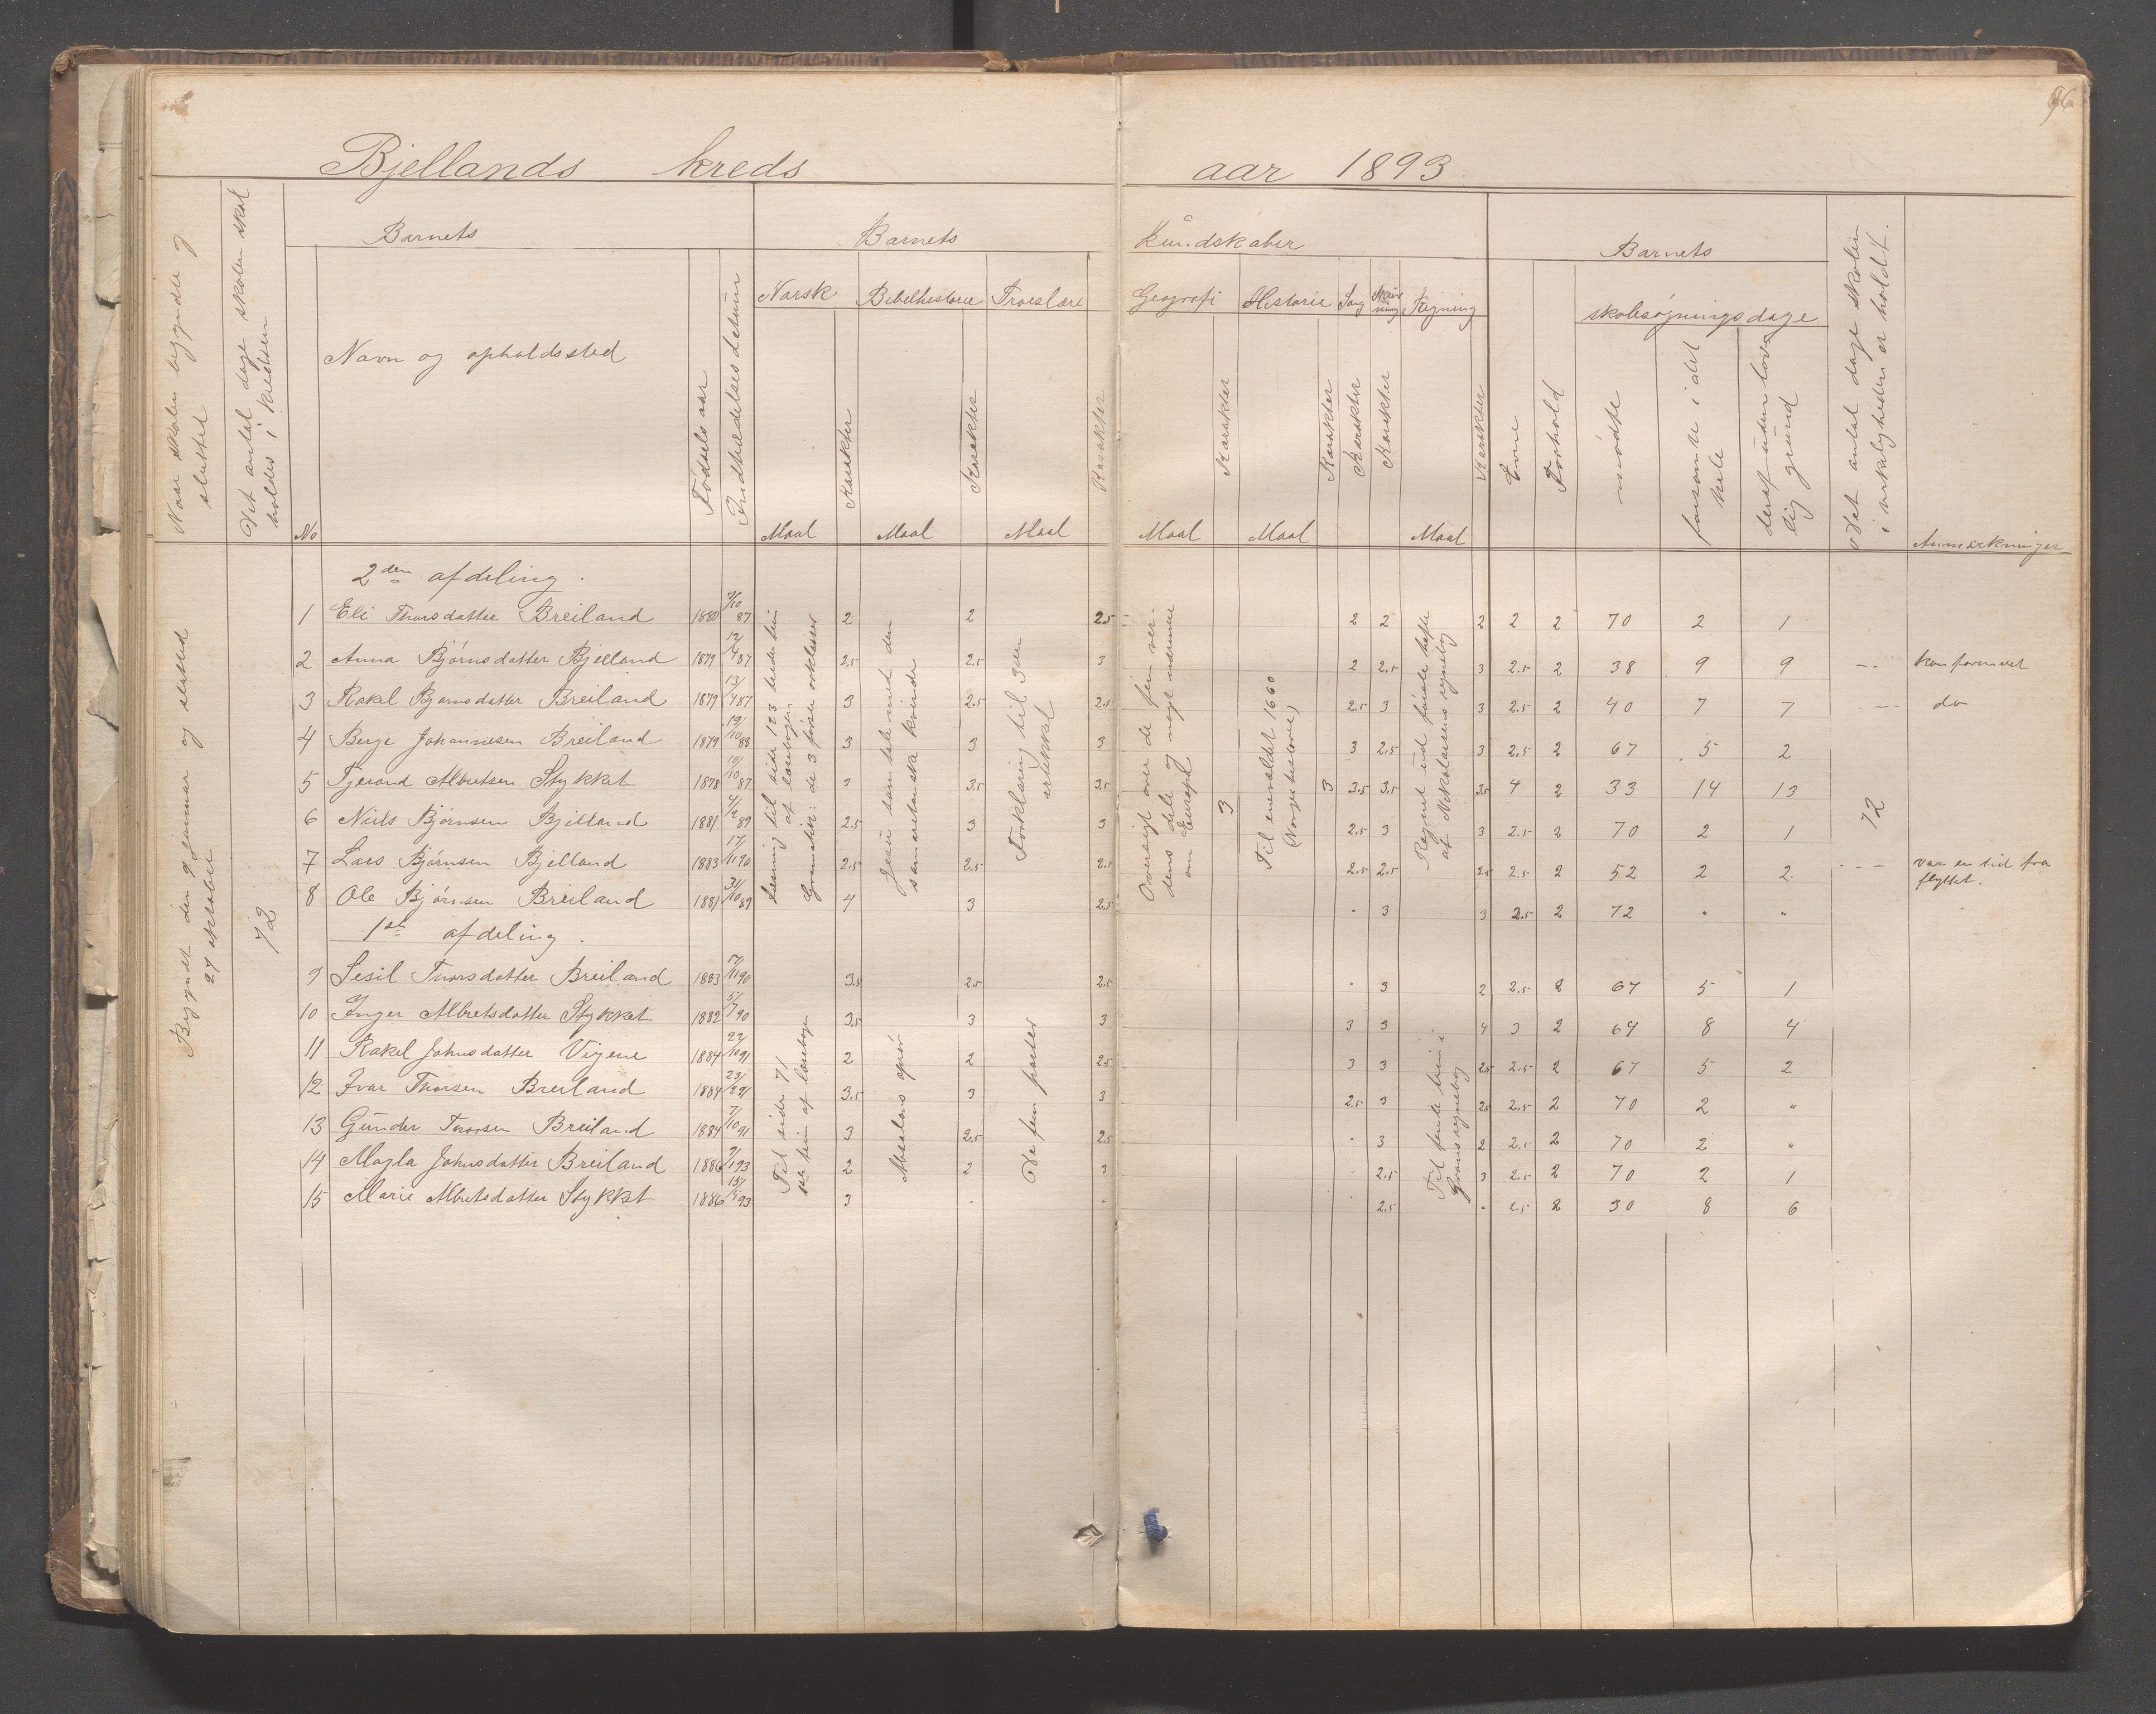 96
Bjellands kreds aar 1893
Naar skolen begyndte og sluttet
Det antal dage skolen skal holdes i kredsen
Barnets
Barnets Kundskaber
Barnets
Det antal dage skolen i virkeligheden er holdt.
Anmærkninger
No
Navn og opholdssted
Fødsels aar
Indtrædelses datum
Norsk
Bibelhistorie
Troeslære
Geografi
Historie
Sang
Skrivning
Regning
Maal Karakter Maal Karakter Maal Karakter
Maal Karakter Maal Karakter Karakter Karakter Maal Karakter
Evne
Forhold
skolesøgningsdage
mødte
forsømte i det hele
deraf uden lovlig grund
Begyndt den 9 januar og slutted
27 oktober
72
2den afdeling.
1 Eli Thorsdatter Breiland 1880 7/10 87 2 2 2.5 2 2 2 2 2 70 2 1
2 Anna Bjørnsdatter Bjelland 1879 12/4 87 2.5 2.5 3 2 2.5 3 2.5 2 38 9 9 -- konfirmeret
3 Rakel Bjørnsdatter Breiland 1879 13/4 87 3 2.5 2.5 2.5 3 3 2.5 2 40 7 7 --- do
4 Berge Johannesen Breiland 1879 19/10 88 3 3 3 3 2.5 3 2.5 2 67 5 2
5 Tjerand Albretsen Stykket 1878 10/10 87 3 3.5 3.5 3.5 3.5 3.5 4 2 33 14 13
6 Niels Bjørnsen Bjelland 1881 4/2 89 2.5 3 3 2.5 3 3 2.5 2 70 2 1
7 Lars Bjørnsen Bjelland 1883 17/11 90 2.5 2.5 2.5 2.5 2.5 2.5 2.5 2 52 2 2 --- var en tid fra
flyttet.
8 Ole Bjørnsen Breiland 1881 31/10 89 4 3 2.5 . 3 3 2.5 2 72 " "
Læsning til side 123 tredie trin
af læsebogen
Gramatik: de 3 første ordklasser
Jesu samtale med den
samaritanske kvinde
Forklaring til 3die
artikkel
Oversigt over de fem verdens dele og noget nærmere
om Europa
3
Til enevældet 1660
(Norgeshistorie)
3
Regnet ud første hefte
af Nikolaisens regnebog
72
1ste afdeling.
9 Sesil Thorsdatter Breiland 1883 17/11 90 3.5 2.5 2.5 . 3 2 2.5 2 67 5 1
10 Inger Albretsdatter Stykket 1882 5/7 90 3.5 3 3 3 3 4 3 2 64 8 4
11 Rakel Johnsdatter Vigene 1884 22/10 91 2 2 2.5 3 3 2.5 2.5 2 67 5 2
12 Ivar Thorsen Breiland 1884 3.5 3 3 2.5 3 2.5 2.5 2 70 2 "
13 Gunder Thorsen Breiland 1884 7/10 91 3 2.5 2.5 . 3 2 2.5 2 70 2 "
14 Magla Johnsdatter Breiland 1886 9/1 93 2 2 3 . 2.5 3 2.5 2 70 2 1
15 Marie Albretsdatter Stykket 1886 3 . . . 2.5 . 2.5 2 30 8 6
Til side 71
trin af læsebogen
Absalons oprør
De fem parter
Til femte trin i
regnebog